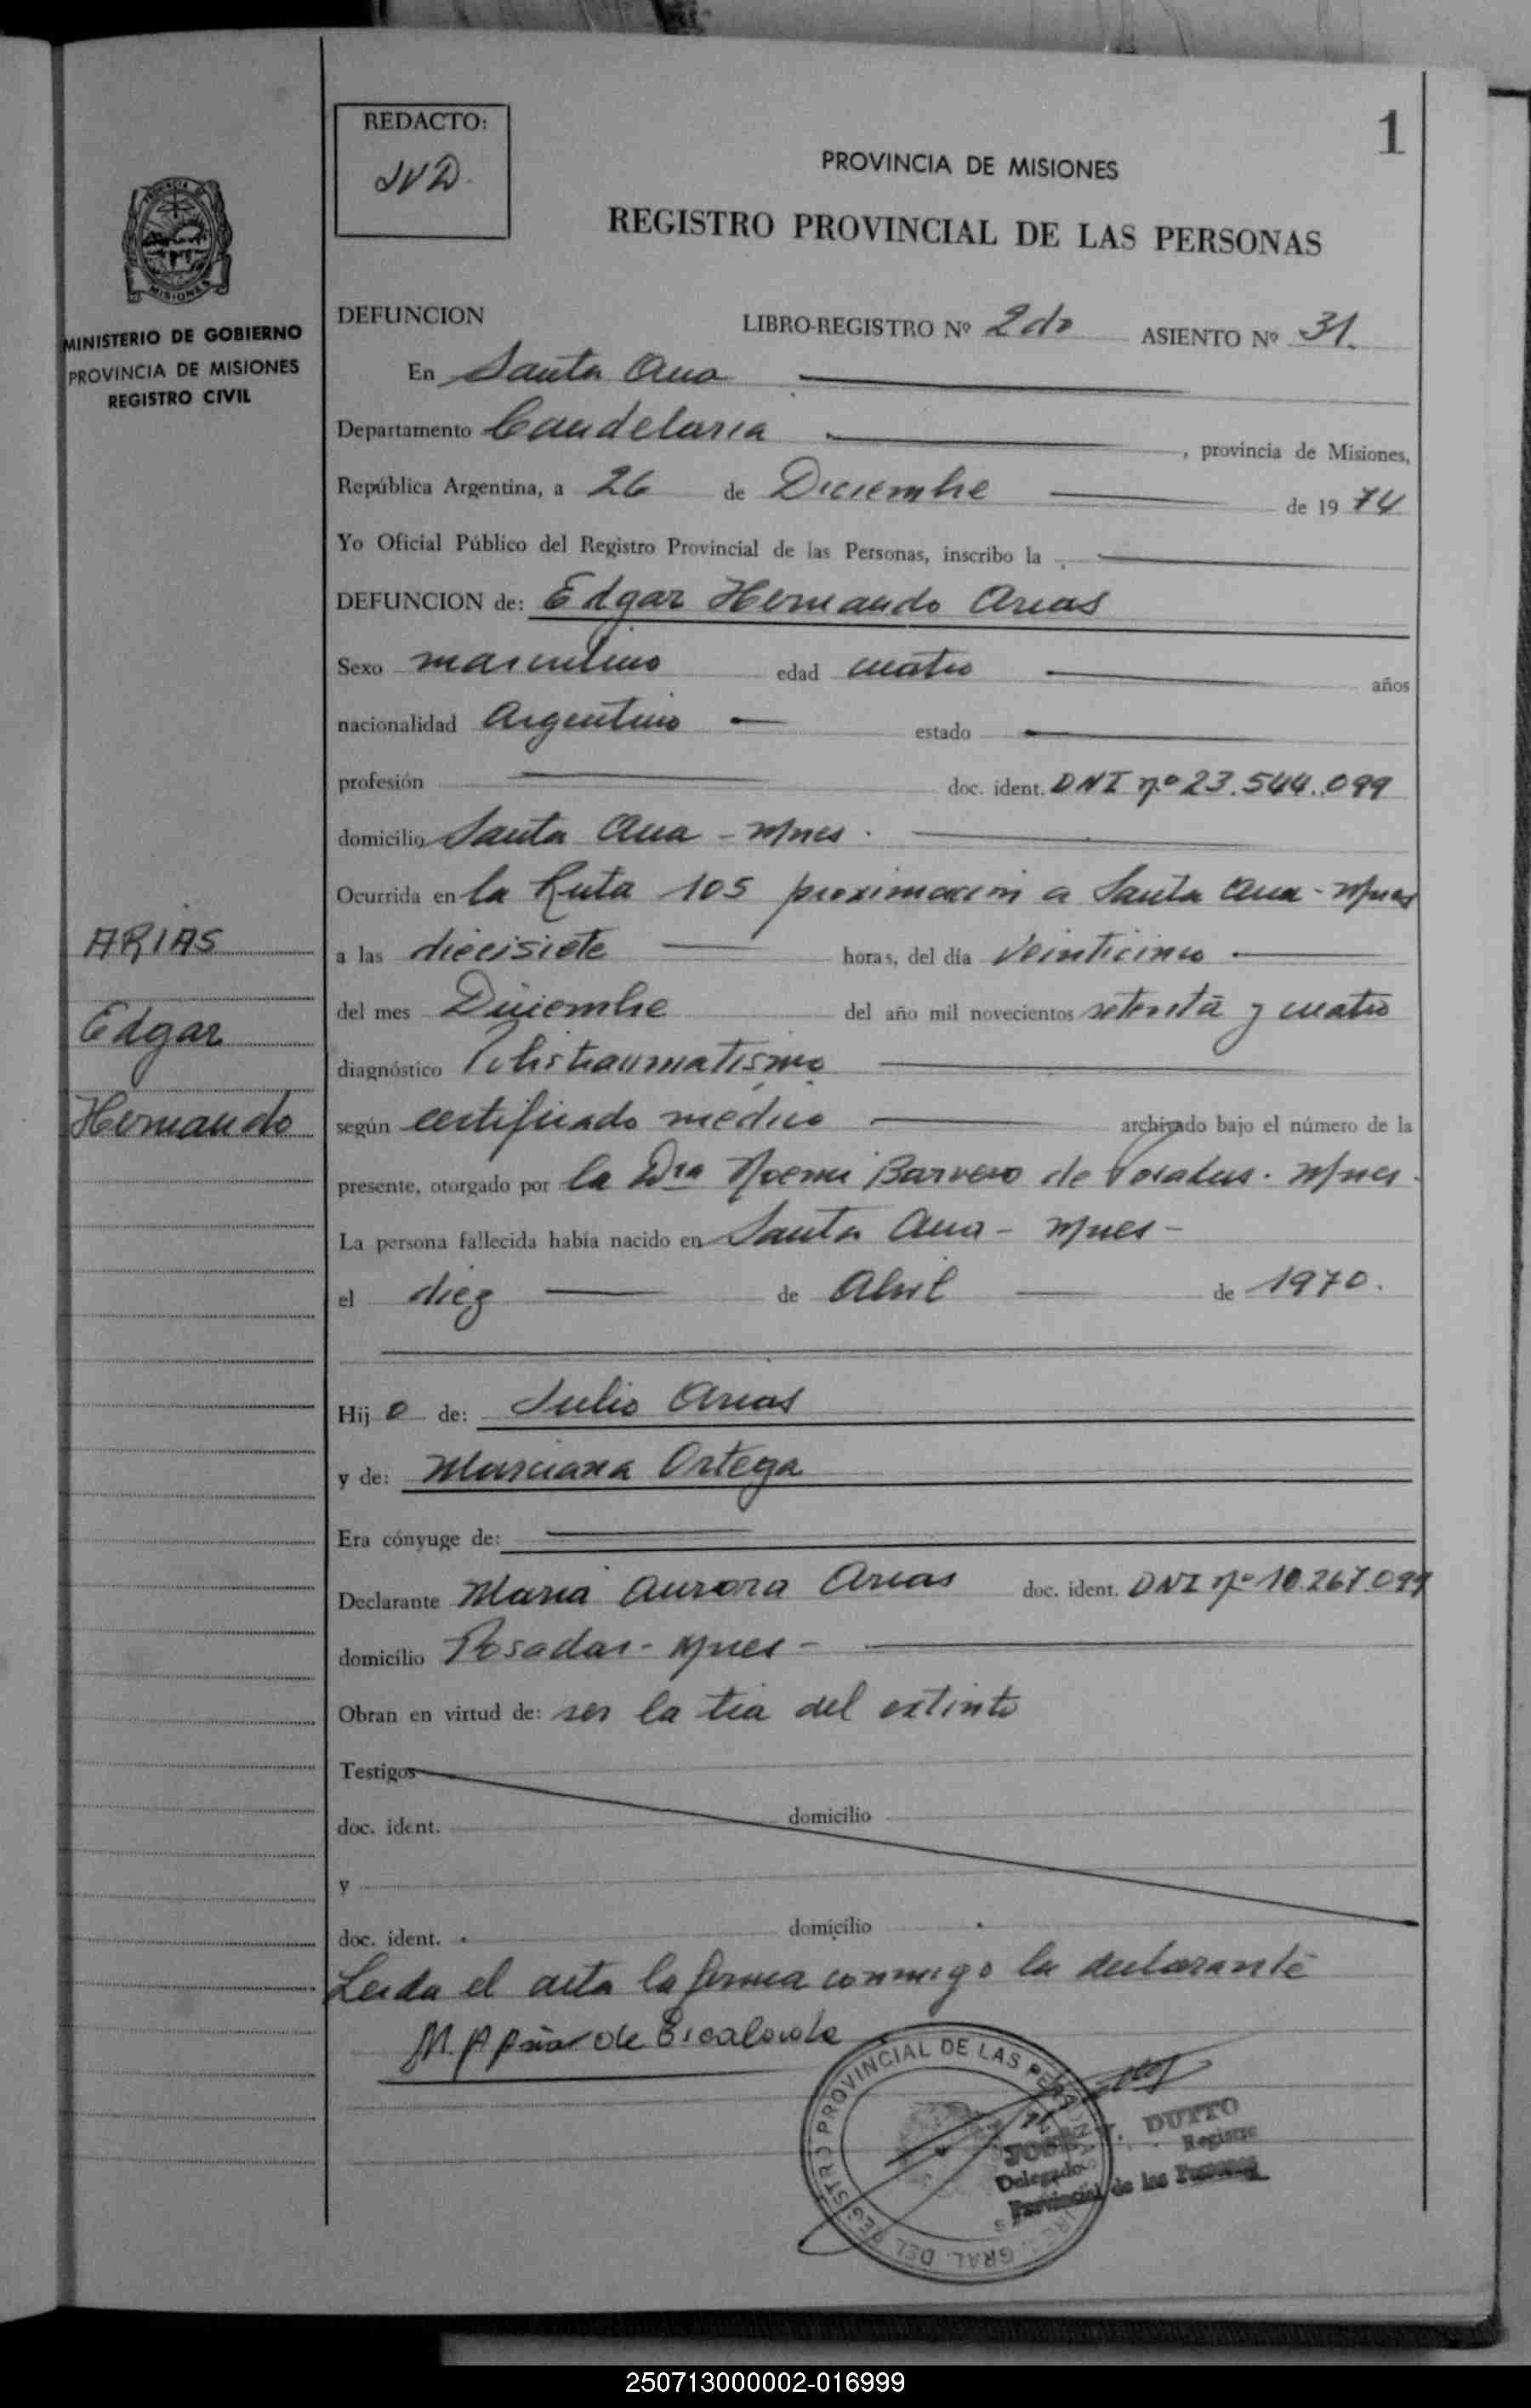 1
REDACTO:
JVD.
PROVINCIA DE MISIONES
REGISTRO PROVINCIAL DE LAS PERSONAS
MISIONES
MINISTERIO DE GOBIERNO
PROVINCIA DE MISIONES
REGISTRO CIVIL
DEFUNCION LIBRO-REGISTRO Nº 2do ASIENTO Nº 31.
En Santa Ana
Departamento Candelaria , provincia de Misiones,
República Argentina, a 26 de Diciembre de 1974
Yo Oficial Público del Registro Provincial de las Personas, inscribo la
DEFUNCION de: Edgar Hernando Arias
Sexo masculino edad cuatro años
nacionalidad Argentino estado
profesión doc. ident. DNI nº 23.544.099
domicilio Santa Ana - Mnes.
Ocurrida en la Ruta 105 proximación a Santa Ana - Mnes
a las diecisiete horas, del día veinticinco
del mes Diciembre del año mil novecientos setenta y cuatro
diagnóstico Politraumatismo
según certificado medico archivado bajo el número de la
presente, otorgado por la Dra Noemi de Posadas. Mnes.
La persona fallecida había nacido en Santa Ana - Mnes -
el diez de Abril de 1970.
Hijo de: Julio Arias
y de: Marciana Ortega
Era cónyuge de:
Declarante Maria Aurora Arias doc. ident. DNI nº 10.267.099
domicilio Posadas - Mnes -
Obran en virtud de: ser la tia del extinto
Testigos
doc. ident. domicilio
y
doc. ident. domicilio
Leida el acta la firma conmigo la declarante
M. A. de
ARIAS
Edgar
Hernando
REGISTRO PROVINCIAL DE LAS PERSONAS
GRAL. DEL
JOSE V. DUTTO
Delegado Registro
Provincial de las Personas
250713000002-016999